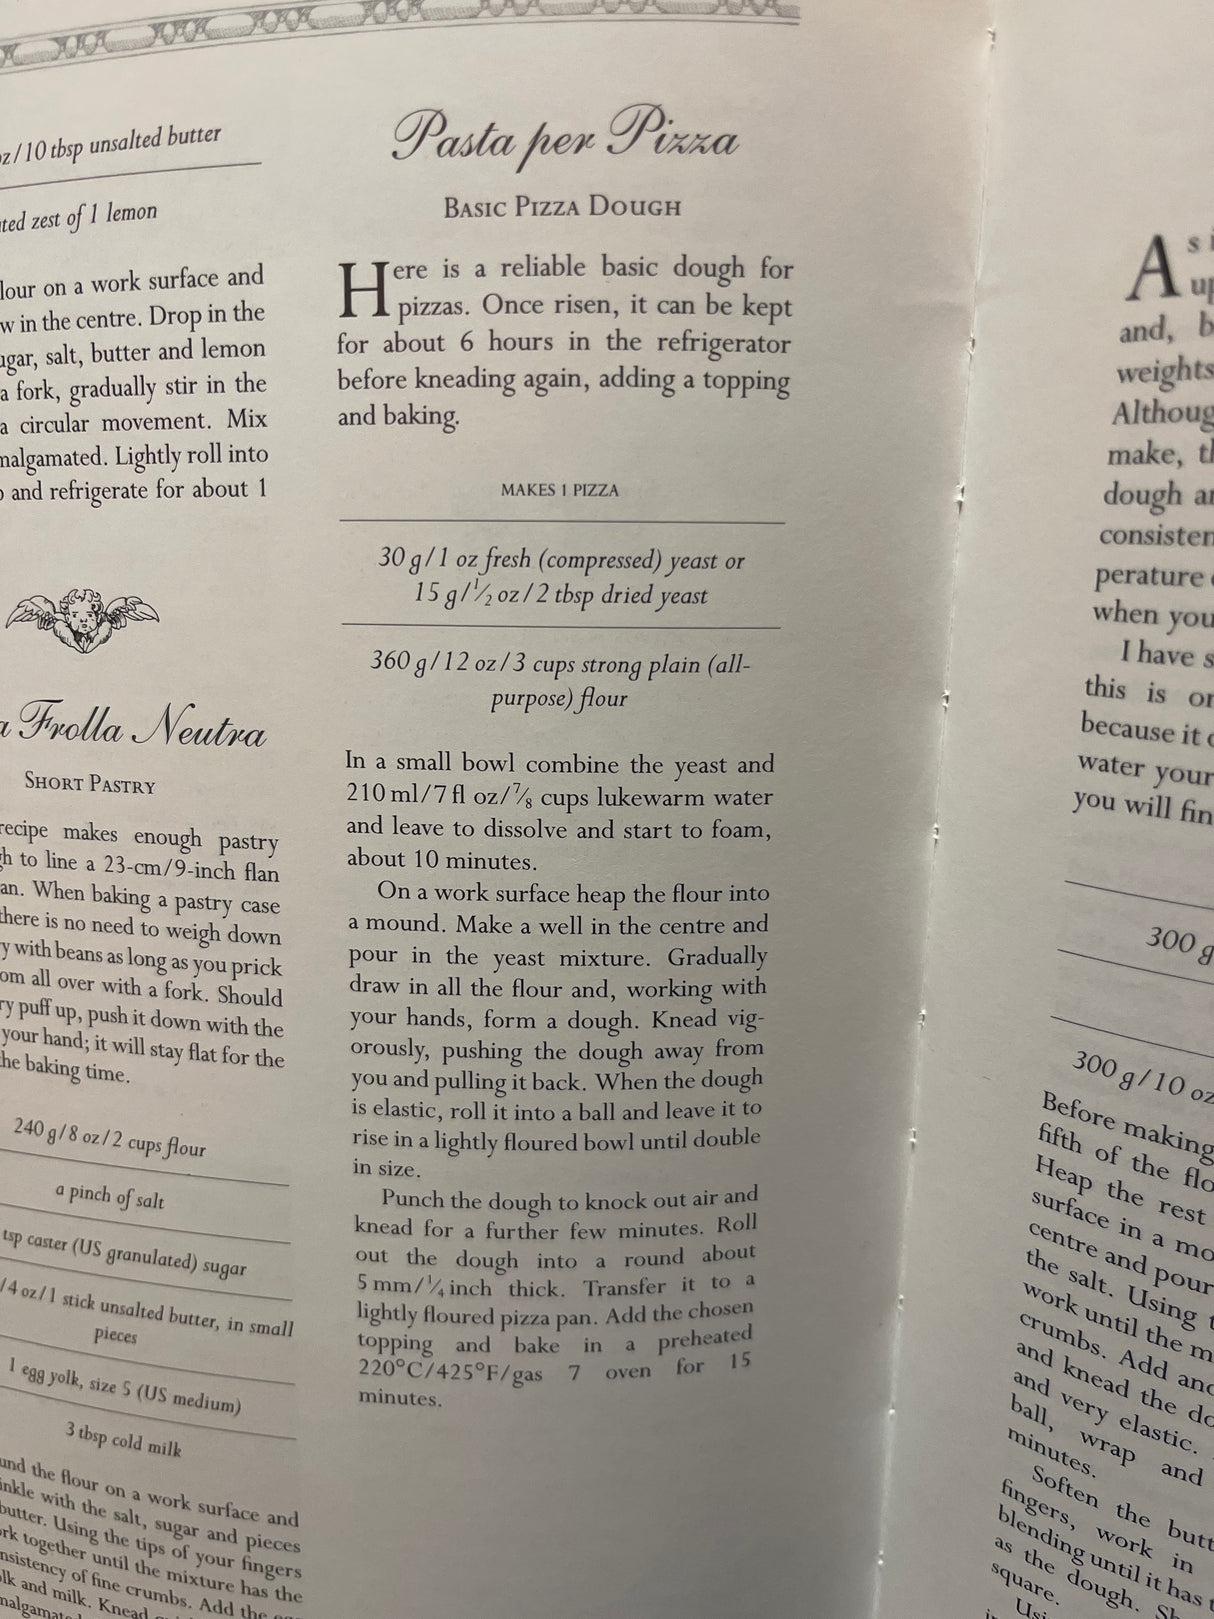 10 tbsp unsalted butter
zest of 1 lemon
on a work surface and
in the centre. Drop in the
salt, butter and lemon
a fork, gradually stir in the
a circular movement. Mix
Lightly roll into
and refrigerate for about 1
Frolla Neutra
SHORT PASTRY
recipe makes enough pastry
to line a 23-cm/9-inch flan
When baking a pastry case
there is no need to weigh down
with beans as long as you prick
all over with a fork. Should
puff up, push it down with the
your hand; it will stay flat for the
baking time.
240 g/8 oz/2 cups flour
a pinch of salt
tsp caster (US granulated) sugar
/4 oz/1 stick unsalted butter, in small
pieces
1 egg yolk, size 5 (US medium)
3 tbsp cold milk
the flour on a work surface and
with the salt, sugar and pieces
butter. Using the tips of your fingers
together until the mixture has the
of fine crumbs. Add the
and milk. Knead
Pasta per Pizza
BASIC PIZZA DOUGH
Here is a reliable basic dough for
pizzas. Once risen, it can be kept
for about 6 hours in the refrigerator
before kneading again, adding a topping
and baking.
MAKES 1 PIZZA
30 g/1 oz fresh (compressed) yeast or
15 g/½ oz/2 tbsp dried yeast
360 g/12 oz/3 cups strong plain (all-
purpose) flour
In a small bowl combine the yeast and
210 ml/7 fl oz/⅞ cups lukewarm water
and leave to dissolve and start to foam,
about 10 minutes.
On a work surface heap the flour into
a mound. Make a well in the centre and
pour in the yeast mixture. Gradually
draw in all the flour and, working with
your hands, form a dough. Knead vig-
orously, pushing the dough away from
you and pulling it back. When the dough
is elastic, roll it into a ball and leave it to
rise in a lightly floured bowl until double
in size.
Punch the dough to knock out air and
knead for a further few minutes. Roll
out the dough into a round about
5 mm/¼ inch thick. Transfer it to a
lightly floured pizza pan. Add the chosen
topping and bake in a preheated
220°C/425°F/gas 7 oven for 15
minutes.
As
up
and,
weights
make,
dough
when you
I have
this is
because it
water your
you will
300 g
300 g/10 oz
Before making
fifth of the
Heap the rest
surface in a
centre and pour
the salt. Using
work until the
crumbs. Add
and knead the
and very elastic.
ball, wrap and
minutes.
Soften the
fingers, work in
blending until it has
as the dough.
square.